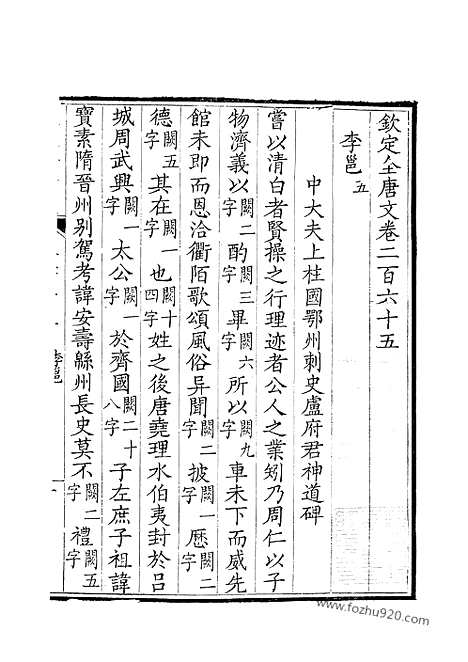 欽定全唐文卷二百六十五
李邕五
中大夫上柱國鄂州刺史盧府君神道碑
嘗以清白者賢操之行理迹者公人之業矧乃周仁以子
物濟義以闕二字酌闕三字畢闕六字所以闕九字車未下而威先
館未即而恩洽衢陌歌頌風俗异聞闕二字披闕一字歷闕二字
德闕五字其在闕一字也闕十四字姓之後唐堯理水伯夷封於呂
城周武興闕一字太公闕一字於齊國闕二十八字子左庶子祖諱
寶素隋晉州别駕考諱安壽緜州長史莫不闕二字禮闕五字
李邕
www.fozhu920.com